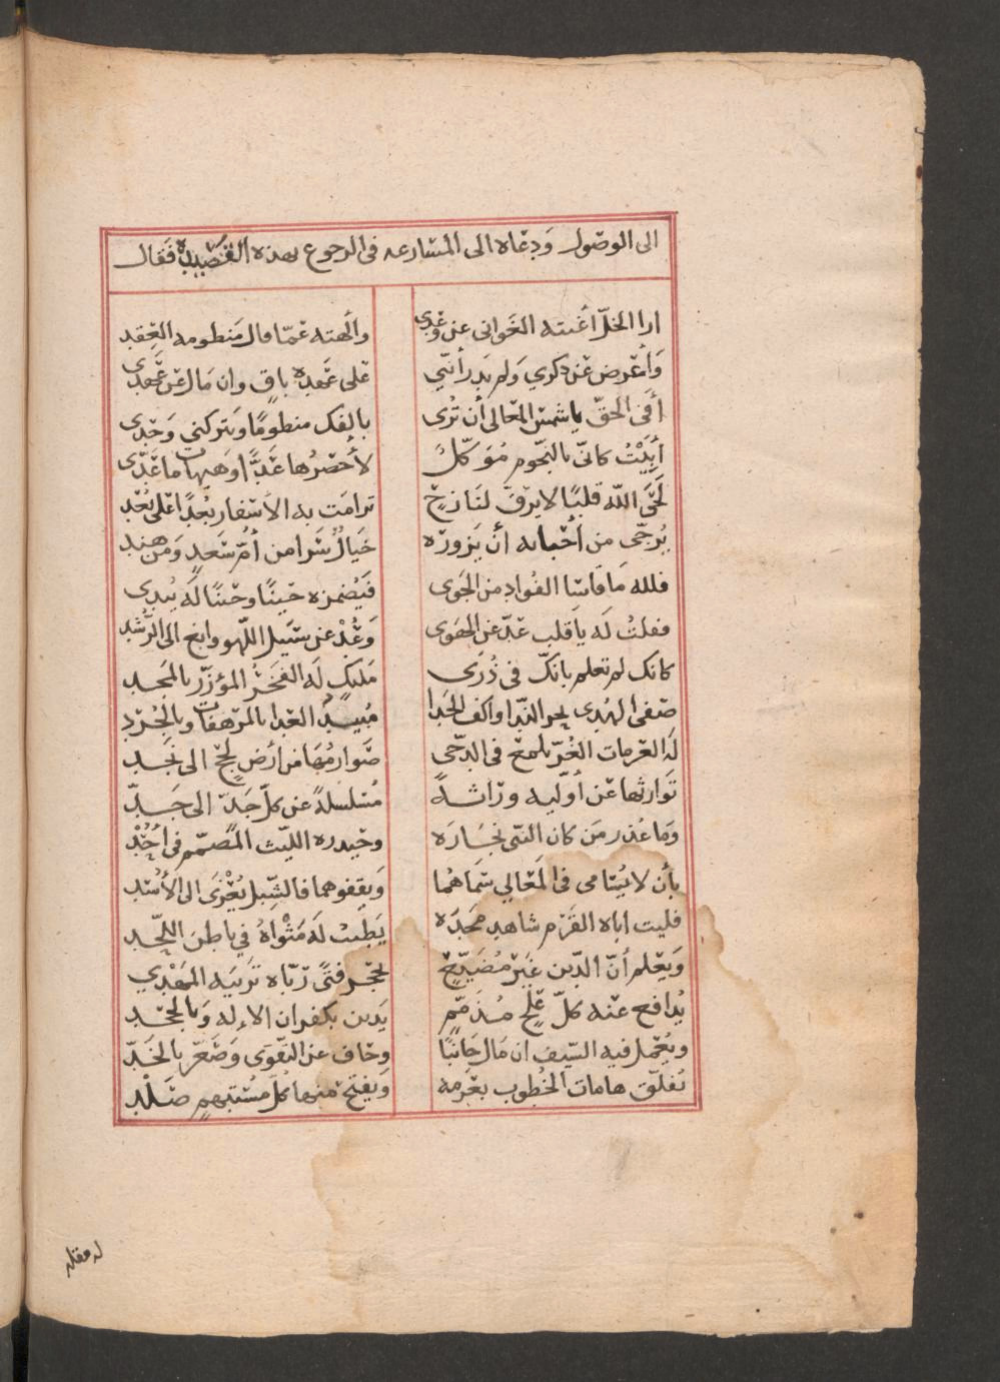 الى الوصول ودعاه الى المسارعه فى الرجوع بهذه القصيدة فقال
ارا الخلّ اغنته الغوانى عن وعدى والهته عمّا قال منظومه العِقد
وَاَعرض عن ذكري وَلم يَدر أنني على عهده باقٍ وان مال عن عَهدى
أفى الحقّ يا شمس المعالى أن تُرى بالفك منظومًا وتتركني وَحْدى
أبيْتُ كانى بالنجوم مُوَكّلٌ لأحصُرُها عَدًّا وَهيهات ما عَدّى
لَحَى الله قلبًا لا يرقّ لنازحٍ ترامَت به الاَسفار بُعْدًا على بُعْد
يُرجّى من أحبابه أن يَزوره خيَالٌ سَرا من أمّ سَعدٍ وَمن هِند
فلله مَا قاسا الفُواد من الجَوى فيُضمره حينًا وحينًا لَه يُبدى
فقلتُ لَه يا قلب عَدّ عن الهوَى وَعُدْ عن سَبيل اللّهو وابغ الى الرُّشد
كانك لم تعلم بانكّ فى ذُرَى مَليكٍ لَه الفخرُ المؤزّر بالمجد
صَفى الهُدى بحر النّدا واكف الجَدا مُبيدُ العِدا بالمرهفات وبالجُرْدِ
لَه العَزمات الغُرّ تلمع فى الدجى صَوارمُهَا من أرض لحجٍ الى نَجد
تَوارثها عَن أوّليه وراثةً مُسَلسلةً عن كلّ جَدّ الى جَدّ
وَما عُذر مَن كان النبى نجَارَه وحيدره الليث المُصَمّم فى اُحْد
بأن لا يُسَامى فى المَعالي سَمَاهُما وَيقفوهما فالشِّبل يُعْزَى الى الأُسْد
فليت اباه القَرْم شاهد مَجدَه يَطيبُ لَه مَثْواهُ في باطن اللّحد
وَيعْلم أنّ الدّين غيَر مُضيّعٍ بحجر فتًى ربّاه تَربيَه المَهْدي
يُدافع عنه كلّ عِلْجٍ مُذمّمٍ يَدين بكفران الاله وَبالجحْد
ويُعْمل فيه السّيف ان مال جَانبًا وحاف عن التقوَى وَصَعّر بالخَدّ
تُفلّق هامات الخُطوب بعَزمه وَيفتح منها كلّ مُسْتبهمٍ صَلْد
له مقله